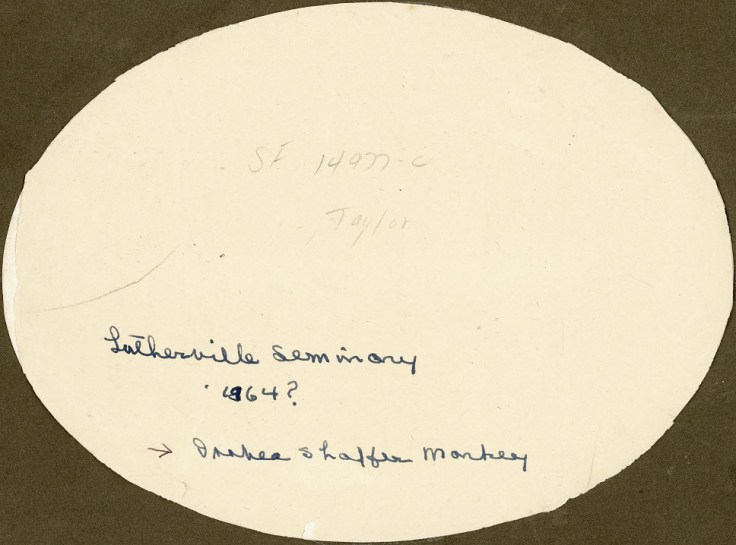 SF 14977-C
Taylor
Lutherville Seminary
1864?
→ Shaffer Markey